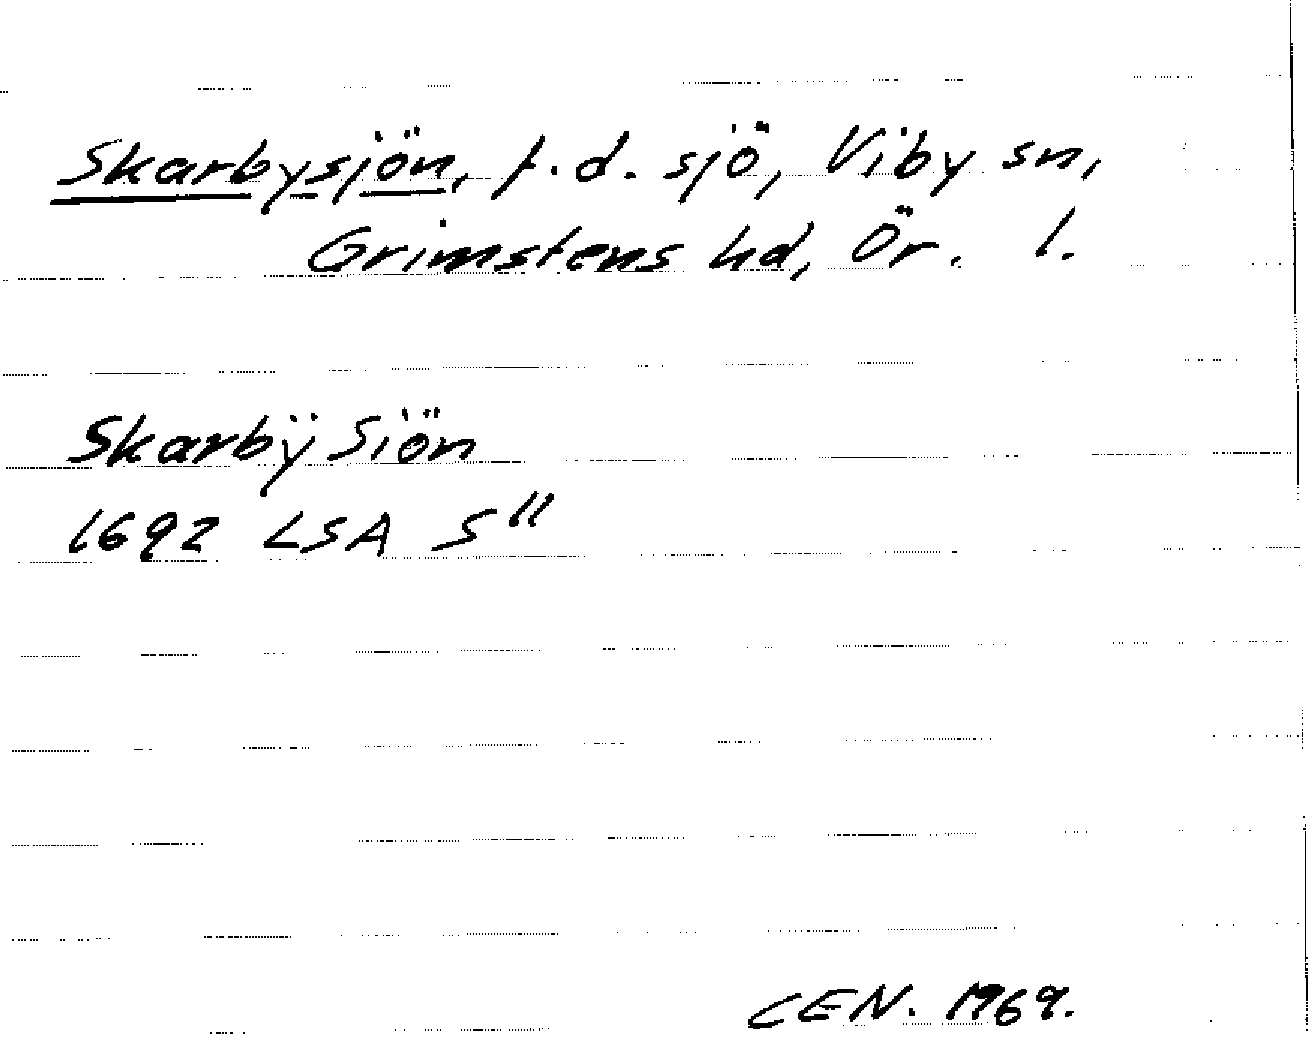 Skarbysjön, f.d. sjö, Viby sn,
Grimstens hd, Ör. l.
Skarbÿ Siön
1692 LSA S"
CEN. 1969.